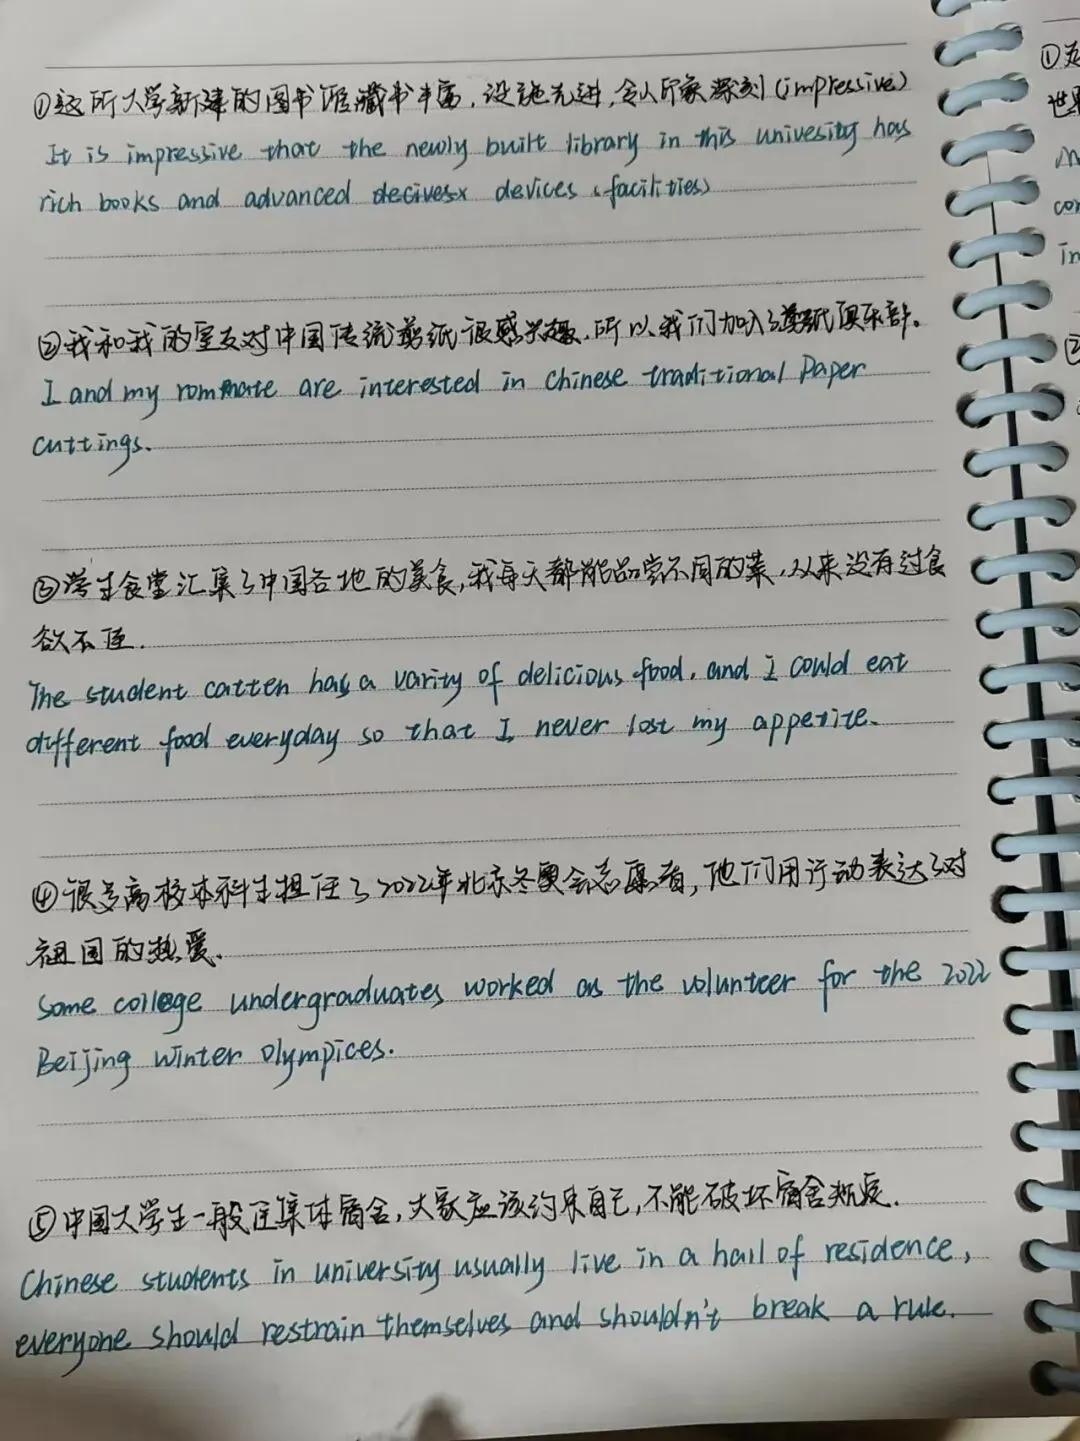 ①这所大学新建的图书馆藏书丰富，设施先进，令人印象深刻(impressive)
It is impressive that the newly built library in this univesity has
rich books and advanced decives× devices (facilities)
②我和我的室友对中国传统剪纸很感兴趣，所以我们加入了剪纸俱乐部。
I and my rommate are interested in chinese traditional Paper
cuttings.
③学生食堂汇集了中国各地的美食，我每天都能品尝不同的菜，从来没有过食
欲不佳.
The student catten has a varity of delicious food, and I could eat
different food everyday so that I never lost my appetite.
④很多高校本科生担任了2022年北京冬奥会志愿者，他们用行动表达了对
祖国的热爱.
Some college undergraduates worked as the volunteer for the 2022
Beijing winter olympices.
⑤中国大学生一般住集体宿舍，大家应该约束自己，不能破坏宿舍规定.
Chinese students in university usually live in a hall of residence,
everyone should restrain themselves and shouldn't break a rule.
①
世界
con
in
②